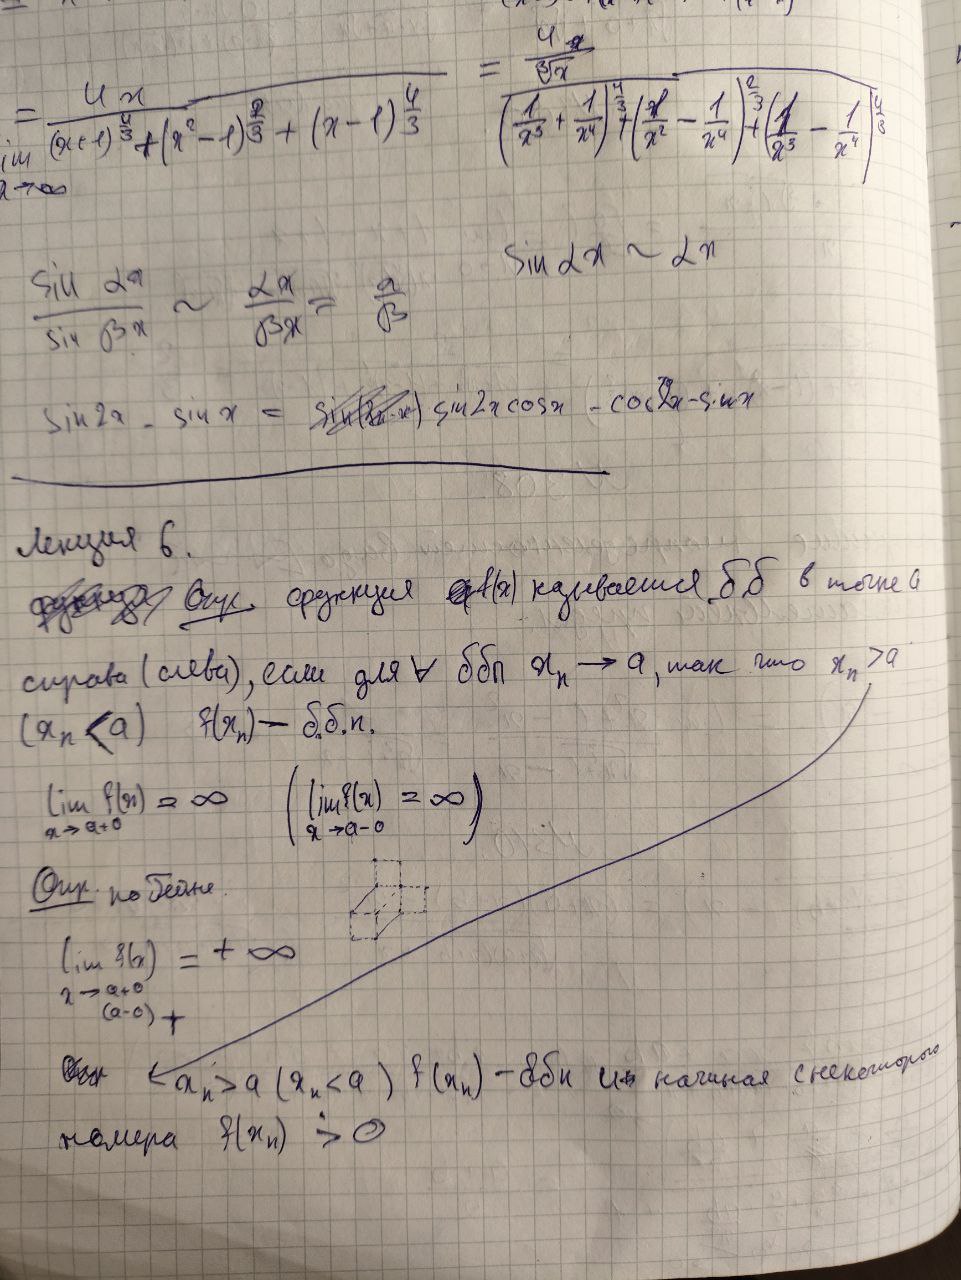 = 4x / ((x+1)^{4/3} + (x²-1)^{2/3} + (x-1)^{4/3}) = (4x / ∛x) / ((1/x³ + 1/x⁴)^{4/3} + (1/x² - 1/x⁴)^{2/3} + (1/x³ - 1/x⁴)^{4/3})
lim x→∞
sin αx ~ αx
sin αx / sin βx ~ αx / βx = α / β
sin2x - sin x = sin2x cosx - cos2x - sin x
Лекция 6.
Опр. функция f(x) называется б.б в точке a
справа (слева), если для ∀ ббп xₙ → a, так что xₙ > a
(xₙ < a) f(xₙ) — б.б.п.
lim x→a+0 f(x) = ∞ (lim x→a-0 f(x) = ∞)
Опр. по Гейне.
lim x→a+0 (a-0) f(x) = +∞
xₙ > a (xₙ < a) f(xₙ) - ббп и начиная с некоторого
номера f(xₙ) > 0